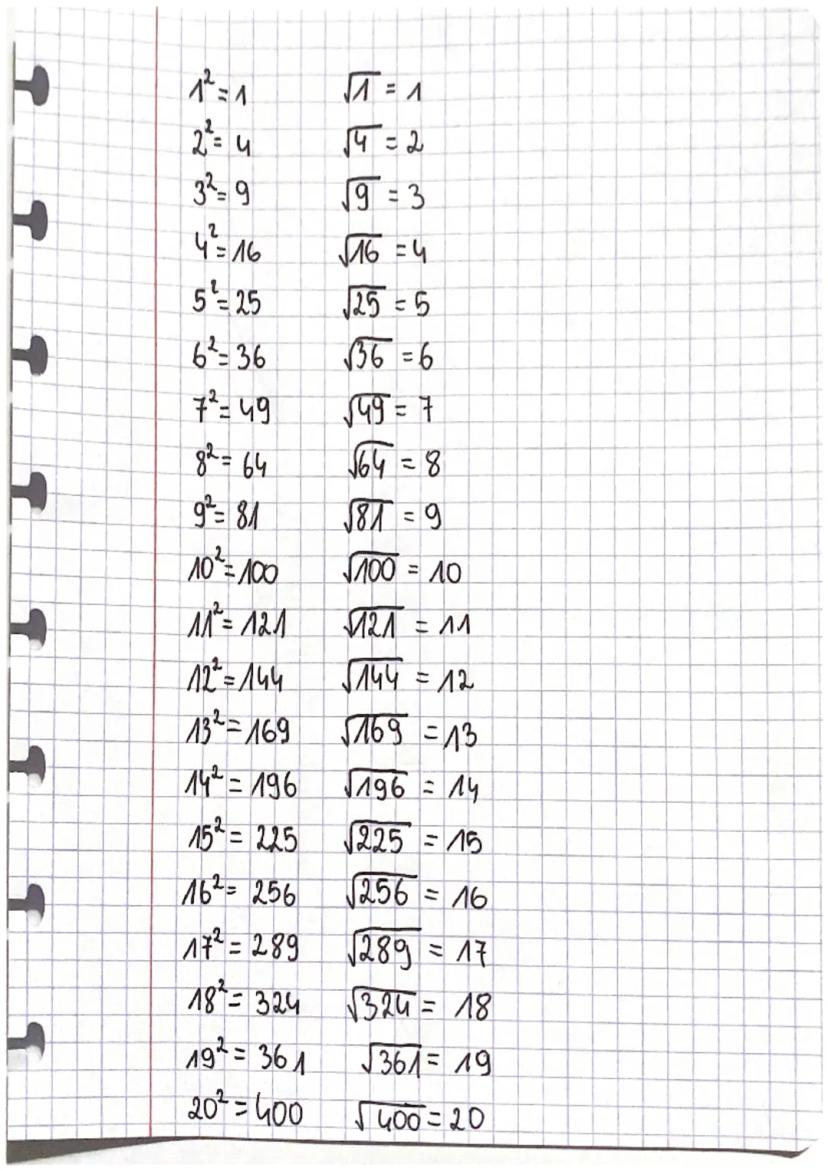 1² = 1 √1 = 1
2² = 4 √4 = 2
3² = 9 √9 = 3
4² = 16 √16 = 4
5² = 25 √25 = 5
6² = 36 √36 = 6
7² = 49 √49 = 7
8² = 64 √64 = 8
9² = 81 √81 = 9
10² = 100 √100 = 10
11² = 121 √121 = 11
12² = 144 √144 = 12
13² = 169 √169 = 13
14² = 196 √196 = 14
15² = 225 √225 = 15
16² = 256 √256 = 16
17² = 289 √289 = 17
18² = 324 √324 = 18
19² = 361 √361 = 19
20² = 400 √400 = 20